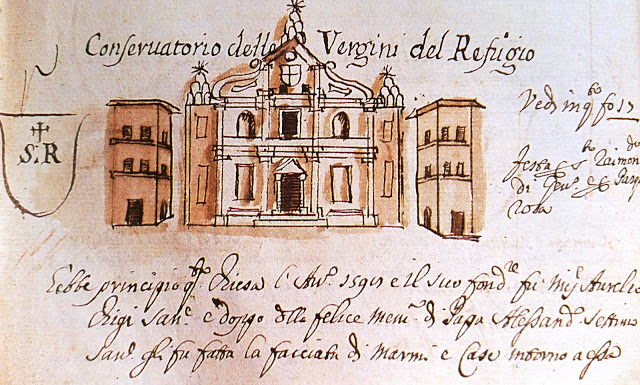 Conseruatorio delle Vergini del Refugio
S. R
Vedi in q.to fo 17
festa
di Gen.
Ebbe principio q.ta Chiesa l'An.o 1591 e il suo fond.re fu Mis. Aurelio
Chigi San.e e doppo dlla felice mem.a di Papa Alessand.o Settimo
San.e gli fu fatta la facciata di Marmi e Case intorno a essa